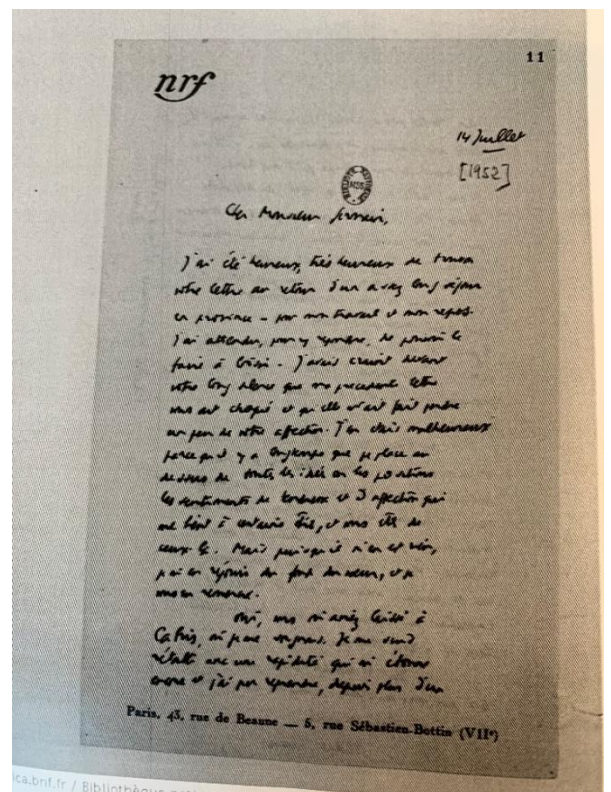 11
nrf
14 Juillet
[1952]
Cher Monsieur Germain,
J'ai été heureux, très heureux de trouver
votre lettre au retour d'un assez long séjour
en province - pour mon travail et mon repos.
J'ai attendu, pour y répondre, de pouvoir le
faire à loisir. J'avais craint devant
votre long silence que ma précédente lettre
vous ait choqué et qu'elle m'ait fait perdre
un peu de votre affection. J'en étais malheureux
parce qu'il y a longtemps que je place au
dessus de toutes les idées ou les positions
les sentiments de tendresse et d'affection qui
me lient à certains êtres, et vous êtes de
ceux-là. Mais puisqu'il n'en est rien,
je m'en réjouis du fond du cœur, et je
vous en remercie.
Oui, vous m'aviez laissé à
Cabris, ai je
rétabli avec une rapidité qui m'étonne
encore et j'ai pu reprendre, depuis plus d'un
Paris, 43, rue de Beaune — 5, rue Sébastien-Bottin (VIIe)
ica.bnf.fr / Bibliothèque